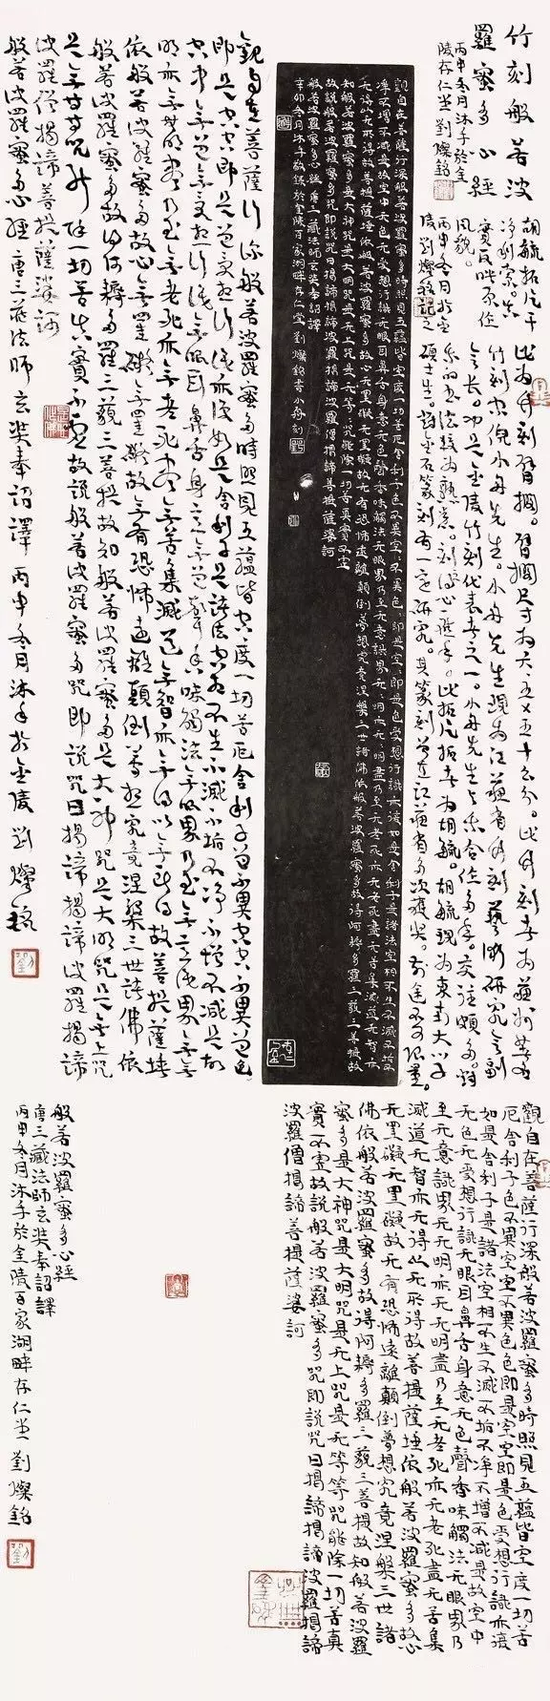 竹刻般若波
羅蜜多心經
丙申冬月沐手於金
陵存仁堂劉燦銘
胡毓拓片干
净利索。真
實反映原作
風貌。
丙申冬月於金
陵劉燦銘記之
此為竹刻臂擱。臂擱尺寸為六、五乂五十三公分。此件刻者為蘇州
竹刻家倪小舟先生。小舟先生現為江蘇省竹刻藝術研究會副
會長。乃是金陵竹刻代表者之一。小舟先生与余合作多年交往頗多。對
余的書法較為熟悉。刻得心應手。此拓片拓者為胡毓。胡毓現為東南大學
碩士生。諳金石篆刻有一定研究。其篆刻曾在江蘇省多次獲獎。前途不可限量。
觀自在菩薩行深般若波羅蜜多時照見五蘊皆空度一切苦厄舍利子色不異空空不異色色即是空空即是色受想行識亦復如是舍利子是諸法空相不生不滅不垢不
淨不增不減是故空中无色无受想行識无眼耳鼻舌身意无色聲香味觸法无眼界乃至无意識界无无明亦无无明盡乃至无老死亦无老死盡无苦集滅道无智亦
无得以无所得故菩提薩埵依般若波羅蜜多故心无罣礙无罣礙故无有恐怖遠離顛倒夢想究竟涅槃三世諸佛依般若波羅蜜多故得阿耨多羅三藐三菩提故
知般若波羅蜜多是大神咒是大明咒是无上咒是无等等咒能除一切苦真實不虛
故說般若波羅蜜多咒即說咒曰揭諦揭諦波羅揭諦波羅僧揭諦菩提薩婆訶
般若波羅蜜多心經 唐三藏法師玄奘奉詔譯
辛卯冬月沐手敬錄於金陵百家湖畔存仁堂劉燦銘書小舟刻
觀自在菩薩行深般若波羅蜜多時照見五蘊皆空度一切苦厄舍利子色不異空空不異色色
即是空空即是色受想行識亦復如是舍利子是諸法空相不生不滅不垢不淨不增不減是故
空中無色無受想行識無眼耳鼻舌身意無色聲香味觸法無眼界乃至無意識界無無
明亦無無明盡乃至無老死亦無老死盡無苦集滅道無智亦無得以無所得故菩提薩埵
依般若波羅蜜多故心無罣礙無罣礙故無有恐怖遠離顛倒夢想究竟涅槃三世諸佛依
般若波羅蜜多故得阿耨多羅三藐三菩提故知般若波羅蜜多是大神咒是大明咒是無上咒
是無等等咒能除一切苦真實不虛故說般若波羅蜜多咒即說咒曰揭諦揭諦波羅揭諦
波羅僧揭諦菩提薩婆訶
般若波羅蜜多心經 唐三藏法師玄奘奉詔譯 丙申冬月沐手於金陵劉燦銘
觀自在菩薩行深般若波羅蜜多時照見五蘊皆空度一切苦
厄舍利子色不異空空不異色色即是空空即是色受想行識亦復
如是舍利子是諸法空相不生不滅不垢不淨不增不減是故空中
无色无受想行識无眼耳鼻舌身意无色聲香味觸法无眼界乃
至无意識界无无明亦无无明盡乃至无老死亦无老死盡无苦集
滅道无智亦无得以无所得故菩提薩埵依般若波羅蜜多故心
无罣礙无罣礙故无有恐怖遠離顛倒夢想究竟涅槃三世諸
佛依般若波羅蜜多故得阿耨多羅三藐三菩提故知般若波羅
蜜多是大神咒是大明咒是无上咒是无等等咒能除一切苦真
實不虛故說般若波羅蜜多咒即說咒曰揭諦揭諦波羅揭諦
波羅僧揭諦菩提薩婆訶
般若波羅蜜多心經
唐三藏法師玄奘奉詔譯
丙申冬月沐手於金陵百家湖畔存仁堂劉燦銘